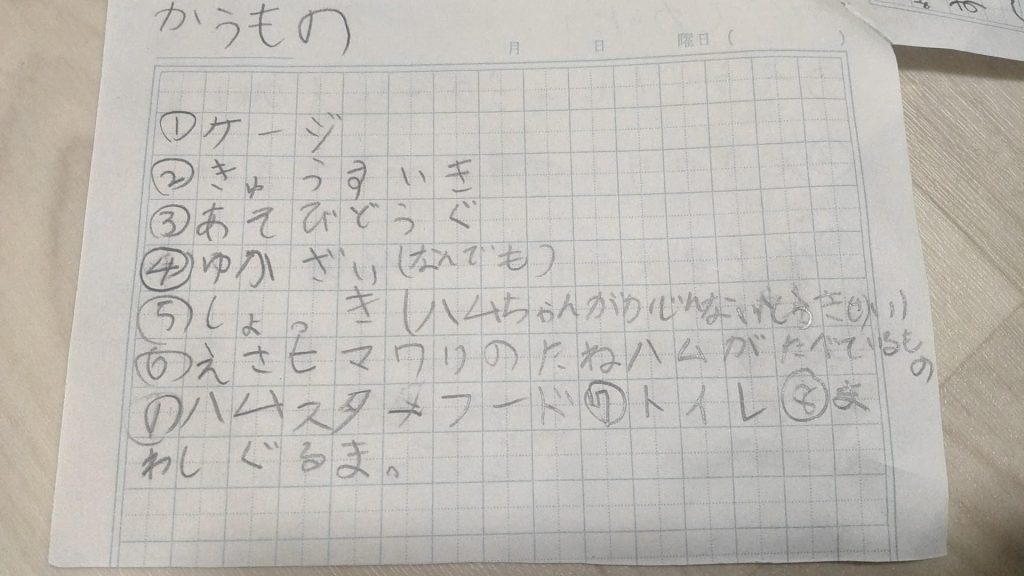 かうもの
月 日 曜日( )
①ケージ
②きゅうすいき
③あそびどうぐ
④ゆかざい(なんでも)
⑤しょっき(ハムちゃんが
⑥えさヒマワリのたねハムがたべているもの
ハムスターフード⑦トイレ⑧ま
わしぐるま。